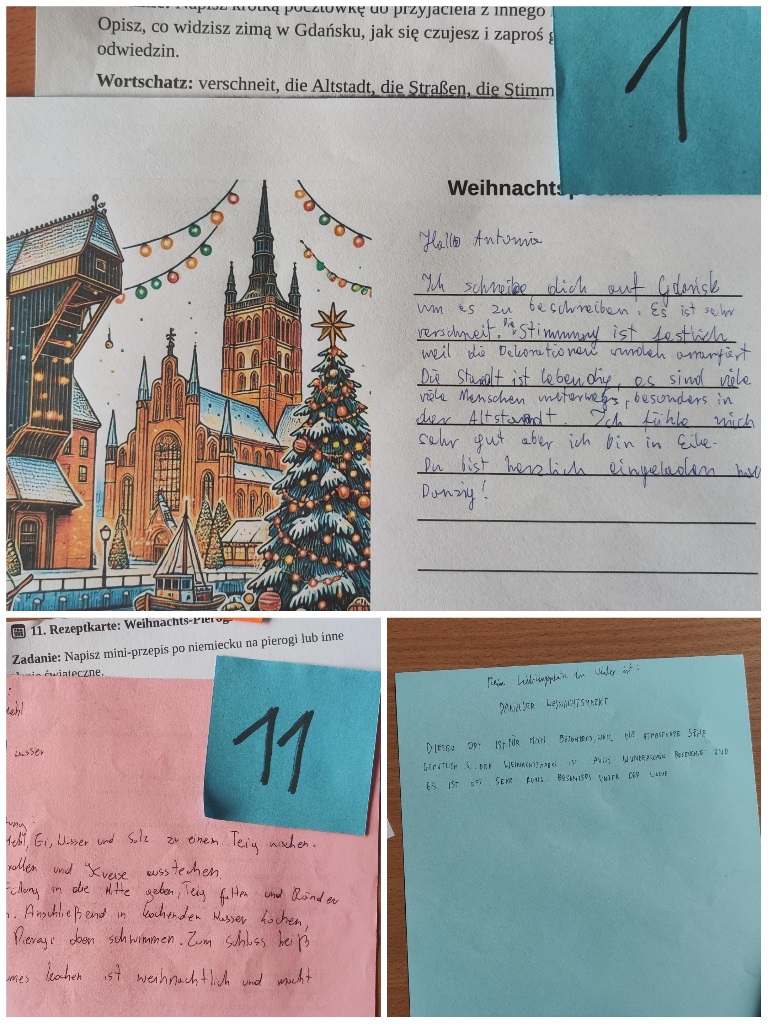 Napisz krótką pocztówkę do przyjaciela z innego
Opisz, co widzisz zimą w Gdańsku, jak się czujesz i zaproś g
odwiedzin.
Wortschatz: verschneit, die Altstadt, die Straßen, die Stimm
1
Weihnachts
Hallo Antonia
Ich schreibe dich auf Gdańsk
um es zu beschreiben. Es ist sehr
verschneit. Die Stimmung ist festlich
weil die Dekorationen wurden arrangiert
Die Stardt ist lebendig, es sind viele
viele Menschen unterwegs, besonders in
der Altstardt. Ich fühle mich
sehr gut aber ich bin in Eile.
Du bist herzlich eingeladen
Danzig!
11. Rezeptkarte: Weihnachts-Pierog
Zadanie: Napisz mini-przepis po niemiecku na pierogi lub inne
świąteczne.
11
ehl
wasser
ung:
ehl, Ei, Wasser und Salz zu einem Teig mischen.
rollen und Kreise ausstechen.
Füllung in die Mitte geben, Teig falten und Ränder
n. Anschließend in kochenden Wasser kochen,
Pierogi oben schwimmen. Zum schluss heiß
mes kochen ist weihnachtlich und macht
Mein Lieblingsplatz im Winter ist:
DANZIGER WEIHNACHTSMARKT
DIESER ORT IST FÜR MICH BESONDERS, WEIL DIE ATMOSPHÄRE SEHR
GEMÜTLICH IST. DER WEIHNACHTSMARKT IST AUCH WUNDERSCHÖN BELEUCHTET UND
ES IST OFT SEHR RUHIG BESONDERS UNTER DER WOCHE